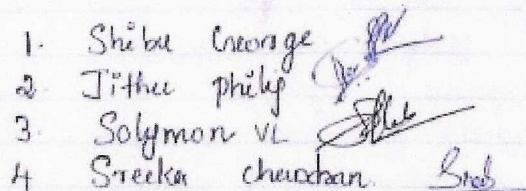 1. Shibu George
2. Jithu philip
3. Solymon VL
4 Sreeka chandran